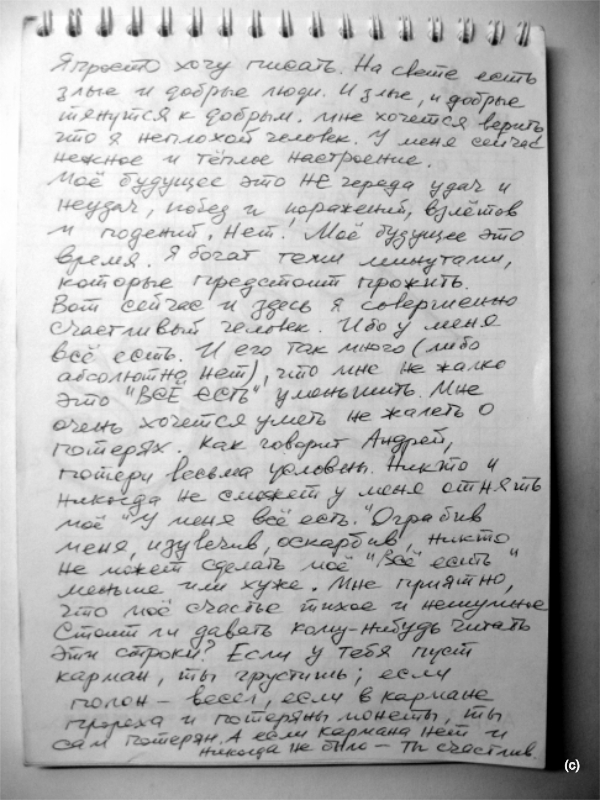 Я просто хочу писать. На свете есть
злые и добрые люди. И злые, и добрые
тянутся к добрым. Мне хочется верить,
что я неплохой человек. У меня сейчас
нежное и тёплое настроение.
Моё будущее это НЕ череда удач и
неудач, побед и поражений, взлётов
и подений. Нет! Моё будущее это
время. Я богат теми минутами,
которые предстоит прожить.
Вот сейчас и здесь я совершенно
счастливый человек. Ибо у меня
всё есть. И его так много (либо
абсолютно нет), что мне не жалко
это "ВСЁ ЕСТЬ" уменьшить. Мне
очень хочется уметь не жалеть о
потерях. Как говорит Андрей,
потери весьма условны. Никто и
никогда не сможет у меня отнять
моё "У меня всё есть." Ограбив
меня, изувечив, оскарбив, никто
не может сделать моё "Всё есть"
меньше или хуже. Мне приятно,
что моё счастье тихое и нешумное
Стоит ли давать кому-нибудь читать
эти строки? Если у тебя пуст
карман, ты грустишь; если
полон – весел, если в кармане
прореха и потеряны монеты, ты
сам потерян. А если кармана нет и
никогда не было – ты счастлив.
(c)